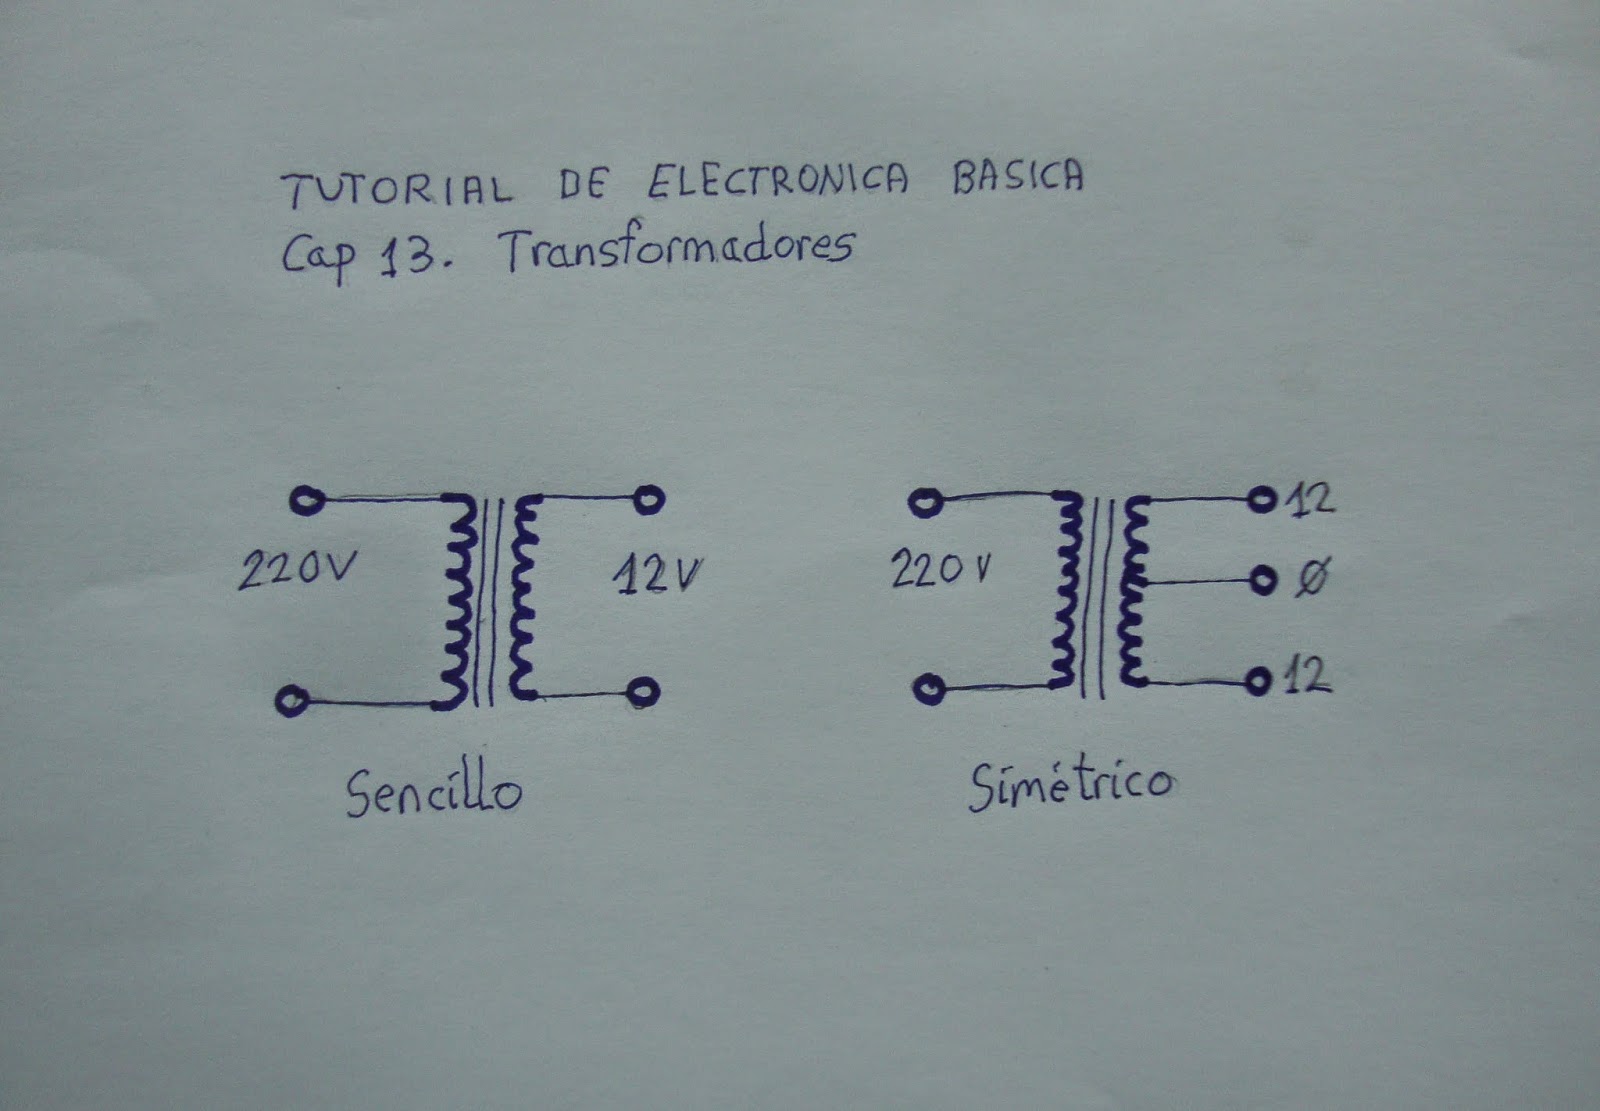 TUTORIAL DE ELECTRONICA BASICA
Cap 13. Transformadores
220V
12V
Sencillo
220V
12
Ø
12
Simétrico